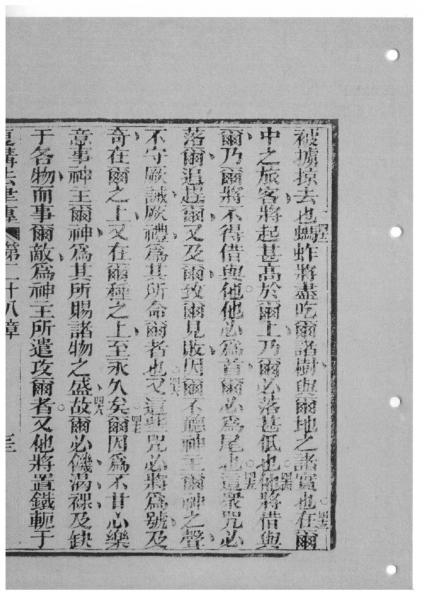 被擄掠去也螞蚱將盡吃爾諸樹與爾地之諸實也在爾
中之旅客將起甚高於爾上乃爾必落甚低也他將借與
爾乃爾將不得借與他他必為首爾必為尾也這眾咒必
落爾追趕爾又及爾致爾見敗因爾不聽神主爾神之聲
不守厥誡厥禮為其所命爾者也又這些咒必將為號及
奇在爾之上又在爾種之上至永久矣爾因為不甘心樂
意事神主爾神為其所賜諸物之盛故爾必饑渴裸及缺
于各物而事爾敵為神主所遣攻爾者又他將置鐵軛于
第二十八章